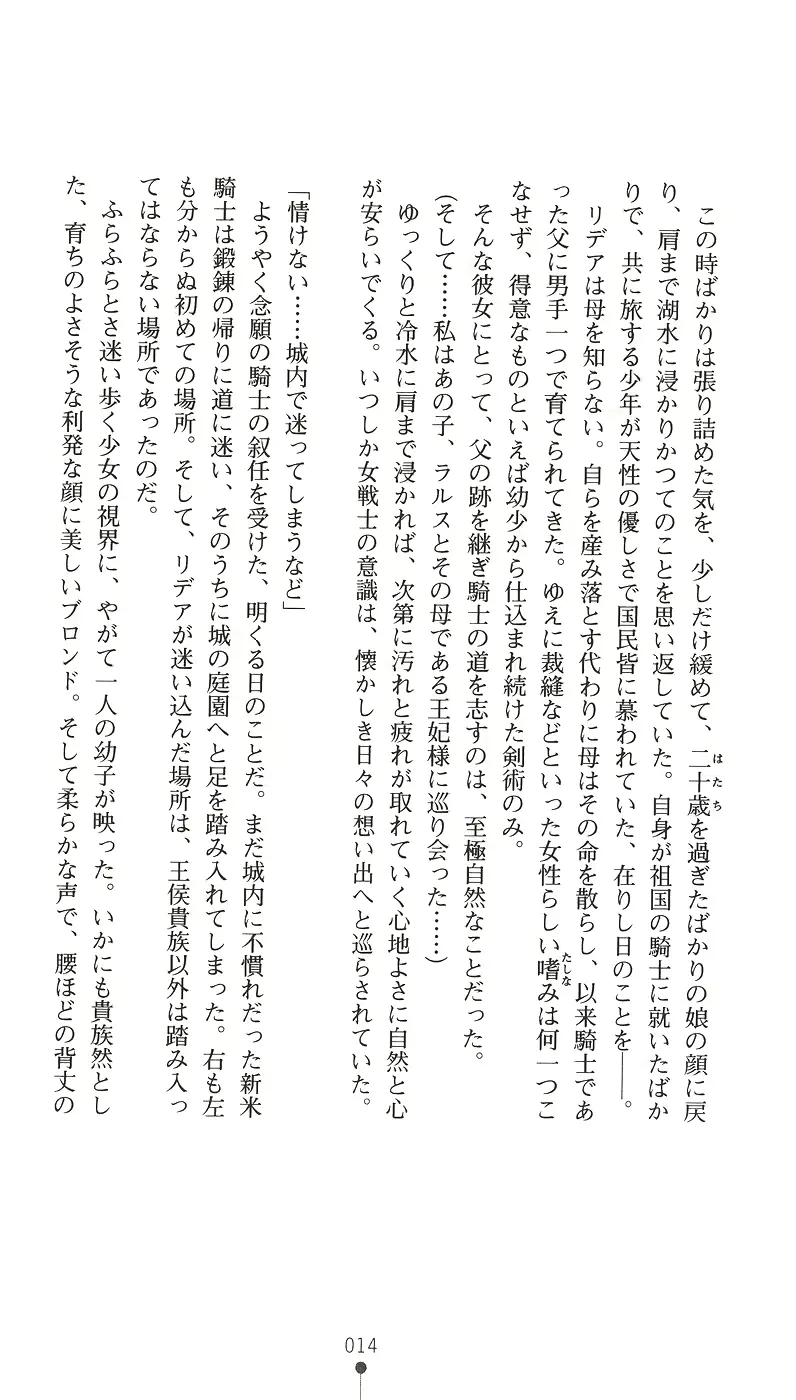 この時ばかりは張り詰めた気を、少しだけ緩めて、二十歳を過ぎたばかりの娘の顔に戻
はたち
り、肩まで湖水に浸かりかつてのことを思い返していた。自身が祖国の騎士に就いたばか
りで、共に旅する少年が天性の優しさで国民皆に慕われていた、在りし日のことを――。
リデアは母を知らない。自らを産み落とす代わりに母はその命を散らし、以来騎士であ
った父に男手一つで育てられてきた。ゆえに裁縫などといった女性らしい嗜みは何一つこ
たしな
なせず、得意なものといえば幼少から仕込まれ続けた剣術のみ。
そんな彼女にとって、父の跡を継ぎ騎士の道を志すのは、至極自然なことだった。
(そして……私はあの子、ラルスとその母である王妃様に巡り会った……)
ゆっくりと冷水に肩まで浸かれば、次第に汚れと疲れが取れていく心地よさに自然と心
が安らいでくる。いつしか女戦士の意識は、懐かしき日々の想い出へと巡らされていた。
「情けない……城内で迷ってしまうなど」
ようやく念願の騎士の叙任を受けた、明くる日のことだ。まだ城内に不慣れだった新米
騎士は鍛錬の帰りに道に迷い、そのうちに城の庭園へと足を踏み入れてしまった。右も左
も分からぬ初めての場所。そして、リデアが迷い込んだ場所は、王侯貴族以外は踏み入っ
てはならない場所であったのだ。
ふらふらとさ迷い歩く少女の視界に、やがて一人の幼子が映った。いかにも貴族然とし
た、育ちのよさそうな利発な顔に美しいブロンド。そして柔らかな声で、腰ほどの背丈の
014